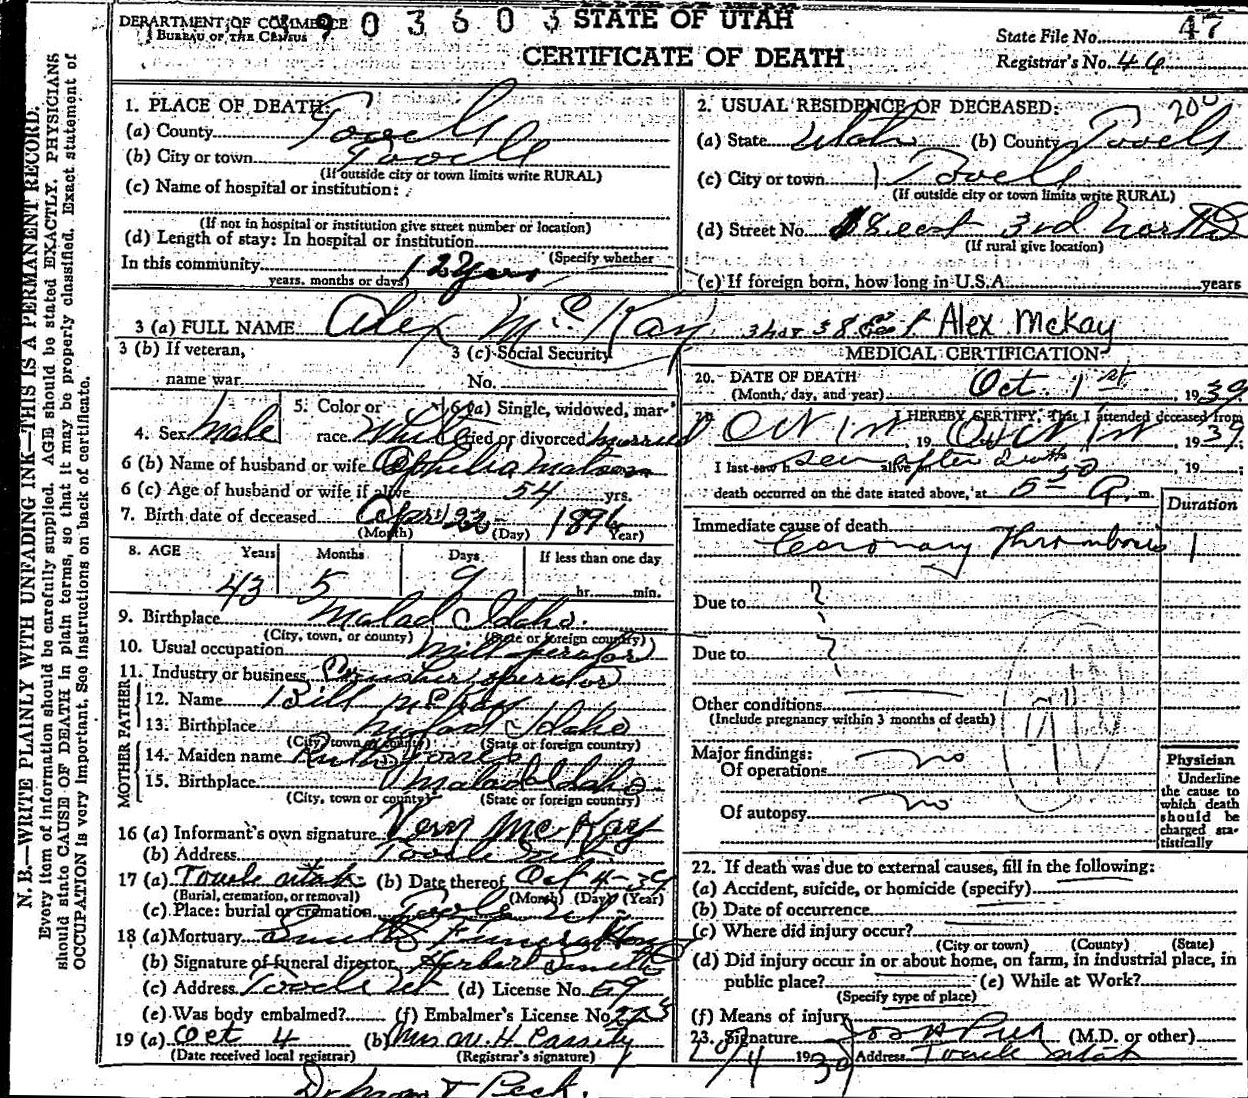 N. B.—WRITE PLAINLY WITH UNFADING INK—THIS IS A PERMANENT RECORD.
Every item of information should be carefully supplied. AGE should be stated EXACTLY. PHYSICIANS
should state CAUSE OF DEATH in plain terms, so that it may be properly classified. Exact statement of
OCCUPATION is very important. See instructions on back of certificate.
DEPARTMENT OF COMMERCE
BUREAU OF THE CENSUS
STATE OF UTAH
CERTIFICATE OF DEATH
State File No. 47
Registrar's No. 46
1. PLACE OF DEATH:
(a) County Tooele
(b) City or town Tooele
(If outside city or town limits write RURAL)
(c) Name of hospital or institution:
(If not in hospital or institution give street number or location)
(d) Length of stay: In hospital or institution
(Specify whether
In this community 12 years
years, months or days)
2. USUAL RESIDENCE OF DECEASED:
(a) State Utah (b) County Tooele
(c) City or town Tooele
(If outside city or town limits write RURAL)
(d) Street No. 18 east 3rd north
(If rural give location)
(e) If foreign born, how long in U.S.A. years
3 (a) FULL NAME Alex McKay Alex McKay
3 (b) If veteran, name war
3 (c) Social Security No.
4. Sex Male
5. Color or race White
6 (a) Single, widowed, married or divorced married
6 (b) Name of husband or wife Ophelia
6 (c) Age of husband or wife if alive 54 yrs.
7. Birth date of deceased Apr 22 1896
(Month) (Day) (Year)
8. AGE Years Months Days If less than one day
43 5 9 hr. min.
9. Birthplace Malad Idaho.
(City, town, or county) (State or foreign country)
10. Usual occupation Mill operator
11. Industry or business Crusher operator
FATHER
12. Name Bill McKay
13. Birthplace Malad Idaho
(City, town or county) (State or foreign country)
MOTHER
14. Maiden name Ruth Jones
15. Birthplace Malad Idaho
(City, town or county) (State or foreign country)
16 (a) Informant's own signature Vern McKay
(b) Address Tooele Ut.
17 (a) Tooele Utah (b) Date thereof Oct 4-39
(Burial, cremation, or removal) (Month) (Day) (Year)
(c) Place: burial or cremation Tooele Ut.
18 (a) Mortuary Smith Funeral Home
(b) Signature of funeral director Herbert Smith
(c) Address Tooele Ut (d) License No. 69
(e) Was body embalmed? (f) Embalmer's License No. 223
19 (a) Oct 4 (b) Mrs W. H. Cassity
(Date received local registrar) (Registrar's signature)
MEDICAL CERTIFICATION
20. DATE OF DEATH Oct. 1st, 1939
(Month, day, and year)
I HEREBY CERTIFY, That I attended deceased from
Oct 1st, 19 Oct 1st, 1939
I last saw h seen after death alive on , 19
death occurred on the date stated above, at 5 m.
Duration
Immediate cause of death
Coronary Thrombosis 1
Due to ?
Due to ?
Other conditions
(Include pregnancy within 3 months of death)
Major findings:
Of operations no
Of autopsy no
Physician
Underline
the cause to
which death
should be
charged sta-
tistically
22. If death was due to external causes, fill in the following:
(a) Accident, suicide, or homicide (specify)
(b) Date of occurrence
(c) Where did injury occur?
(City or town) (County) (State)
(d) Did injury occur in or about home, on farm, in industrial place, in
public place? (e) While at Work?
(Specify type of place)
(f) Means of injury
23. Signature Jos H Peck (M.D. or other)
10/4 1939 Address Tooele Utah
Peck.